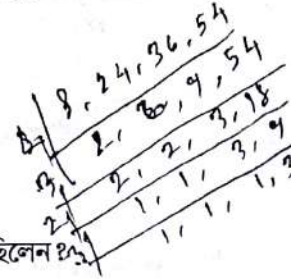 8, 24, 36, 54
2, 6, 9, 54
3 2, 2, 3, 18
2 1, 1, 3, 9
1, 1, 1, 3
ছিলেন ?